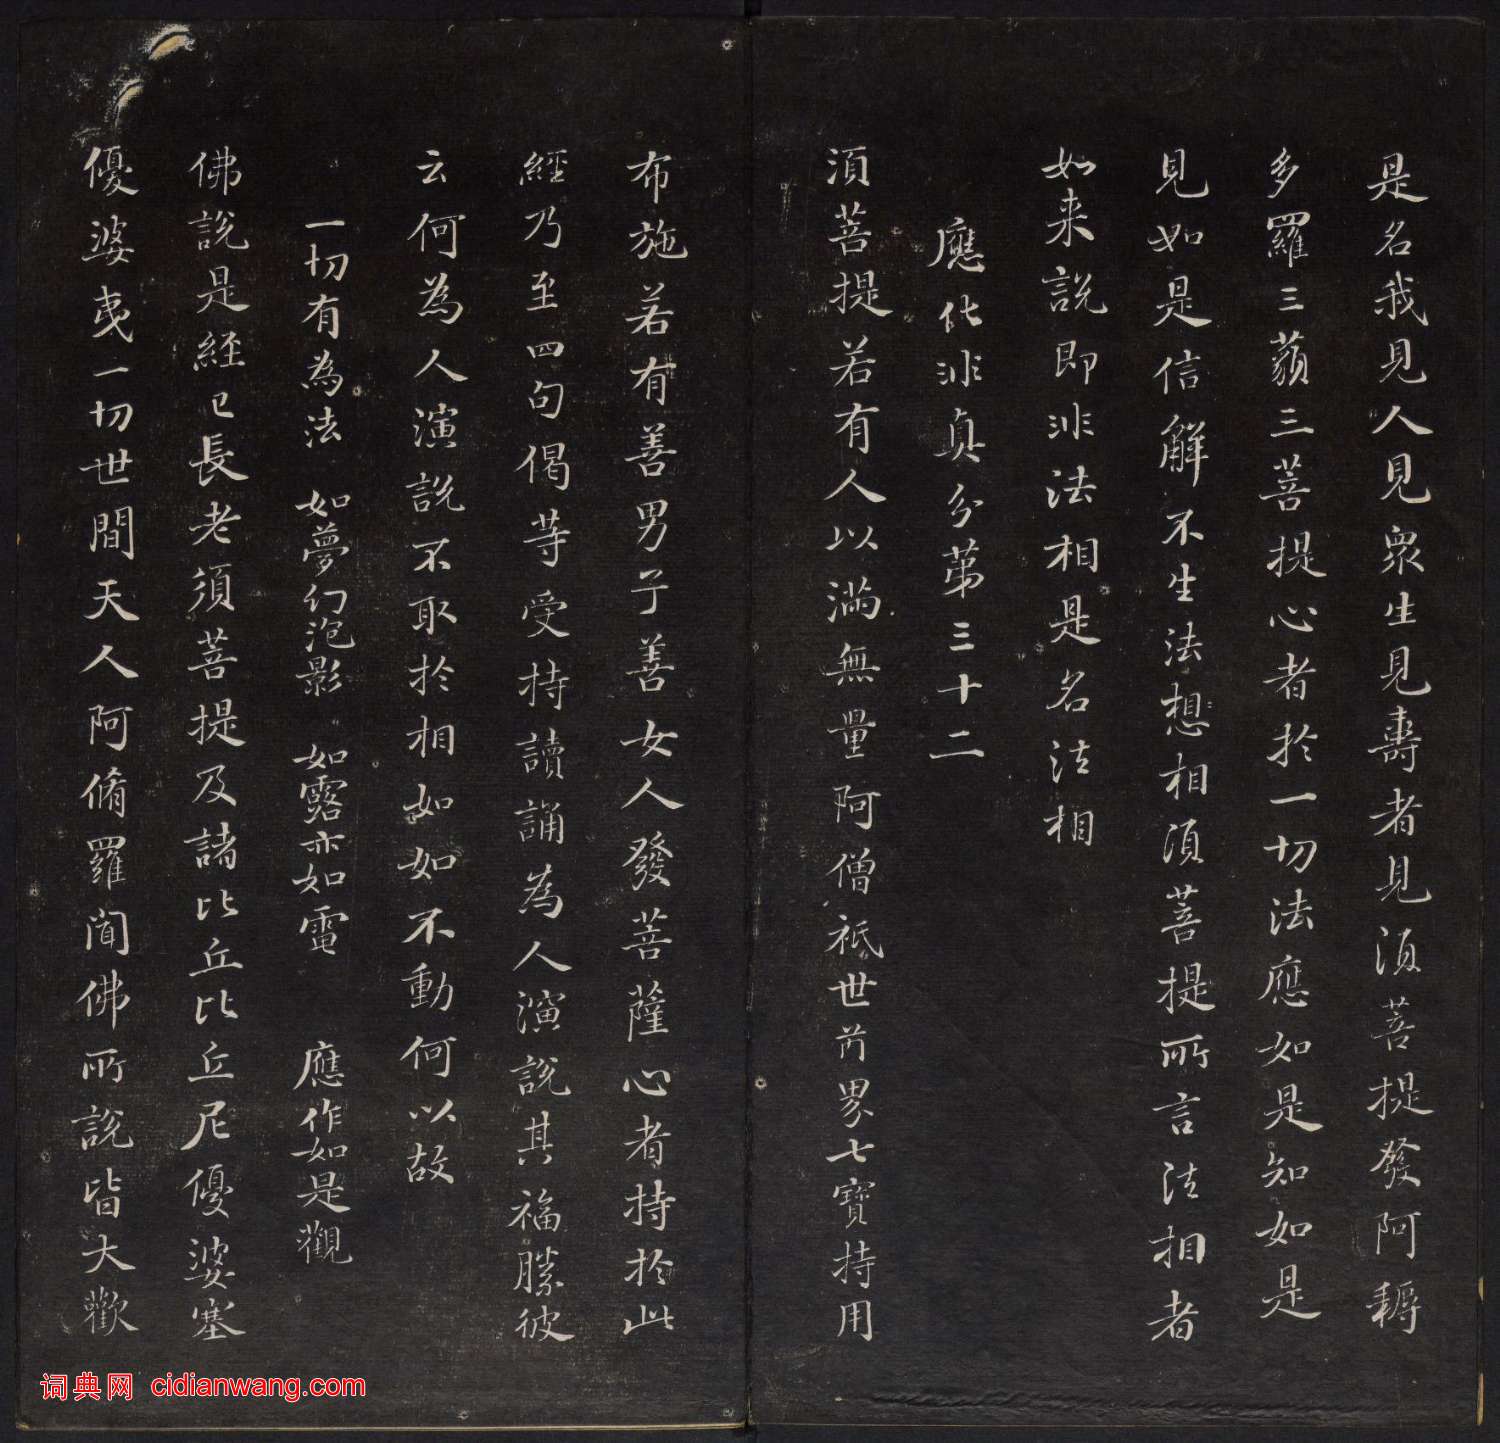 是名我見人見衆生見壽者見須菩提發阿耨
多羅三藐三菩提心者於一切法應如是知如是
見如是信解不生法想相須菩提所言法相者
如来說即非法相是名法相
應化非真分第三十二
須菩提若有人以滿無量阿僧祇世界七寶持用
布施若有善男子善女人發菩薩心者持於此
經乃至四句偈等受持讀誦為人演說其福勝彼
云何為人演說不取於相如如不動何以故
一切有為法 如夢幻泡影 如露亦如電 應作如是觀
佛說是經已長老須菩提及諸比丘比丘尼優婆塞
優婆夷一切世間天人阿脩羅聞佛所說皆大歡
词典网 cidianwang.com